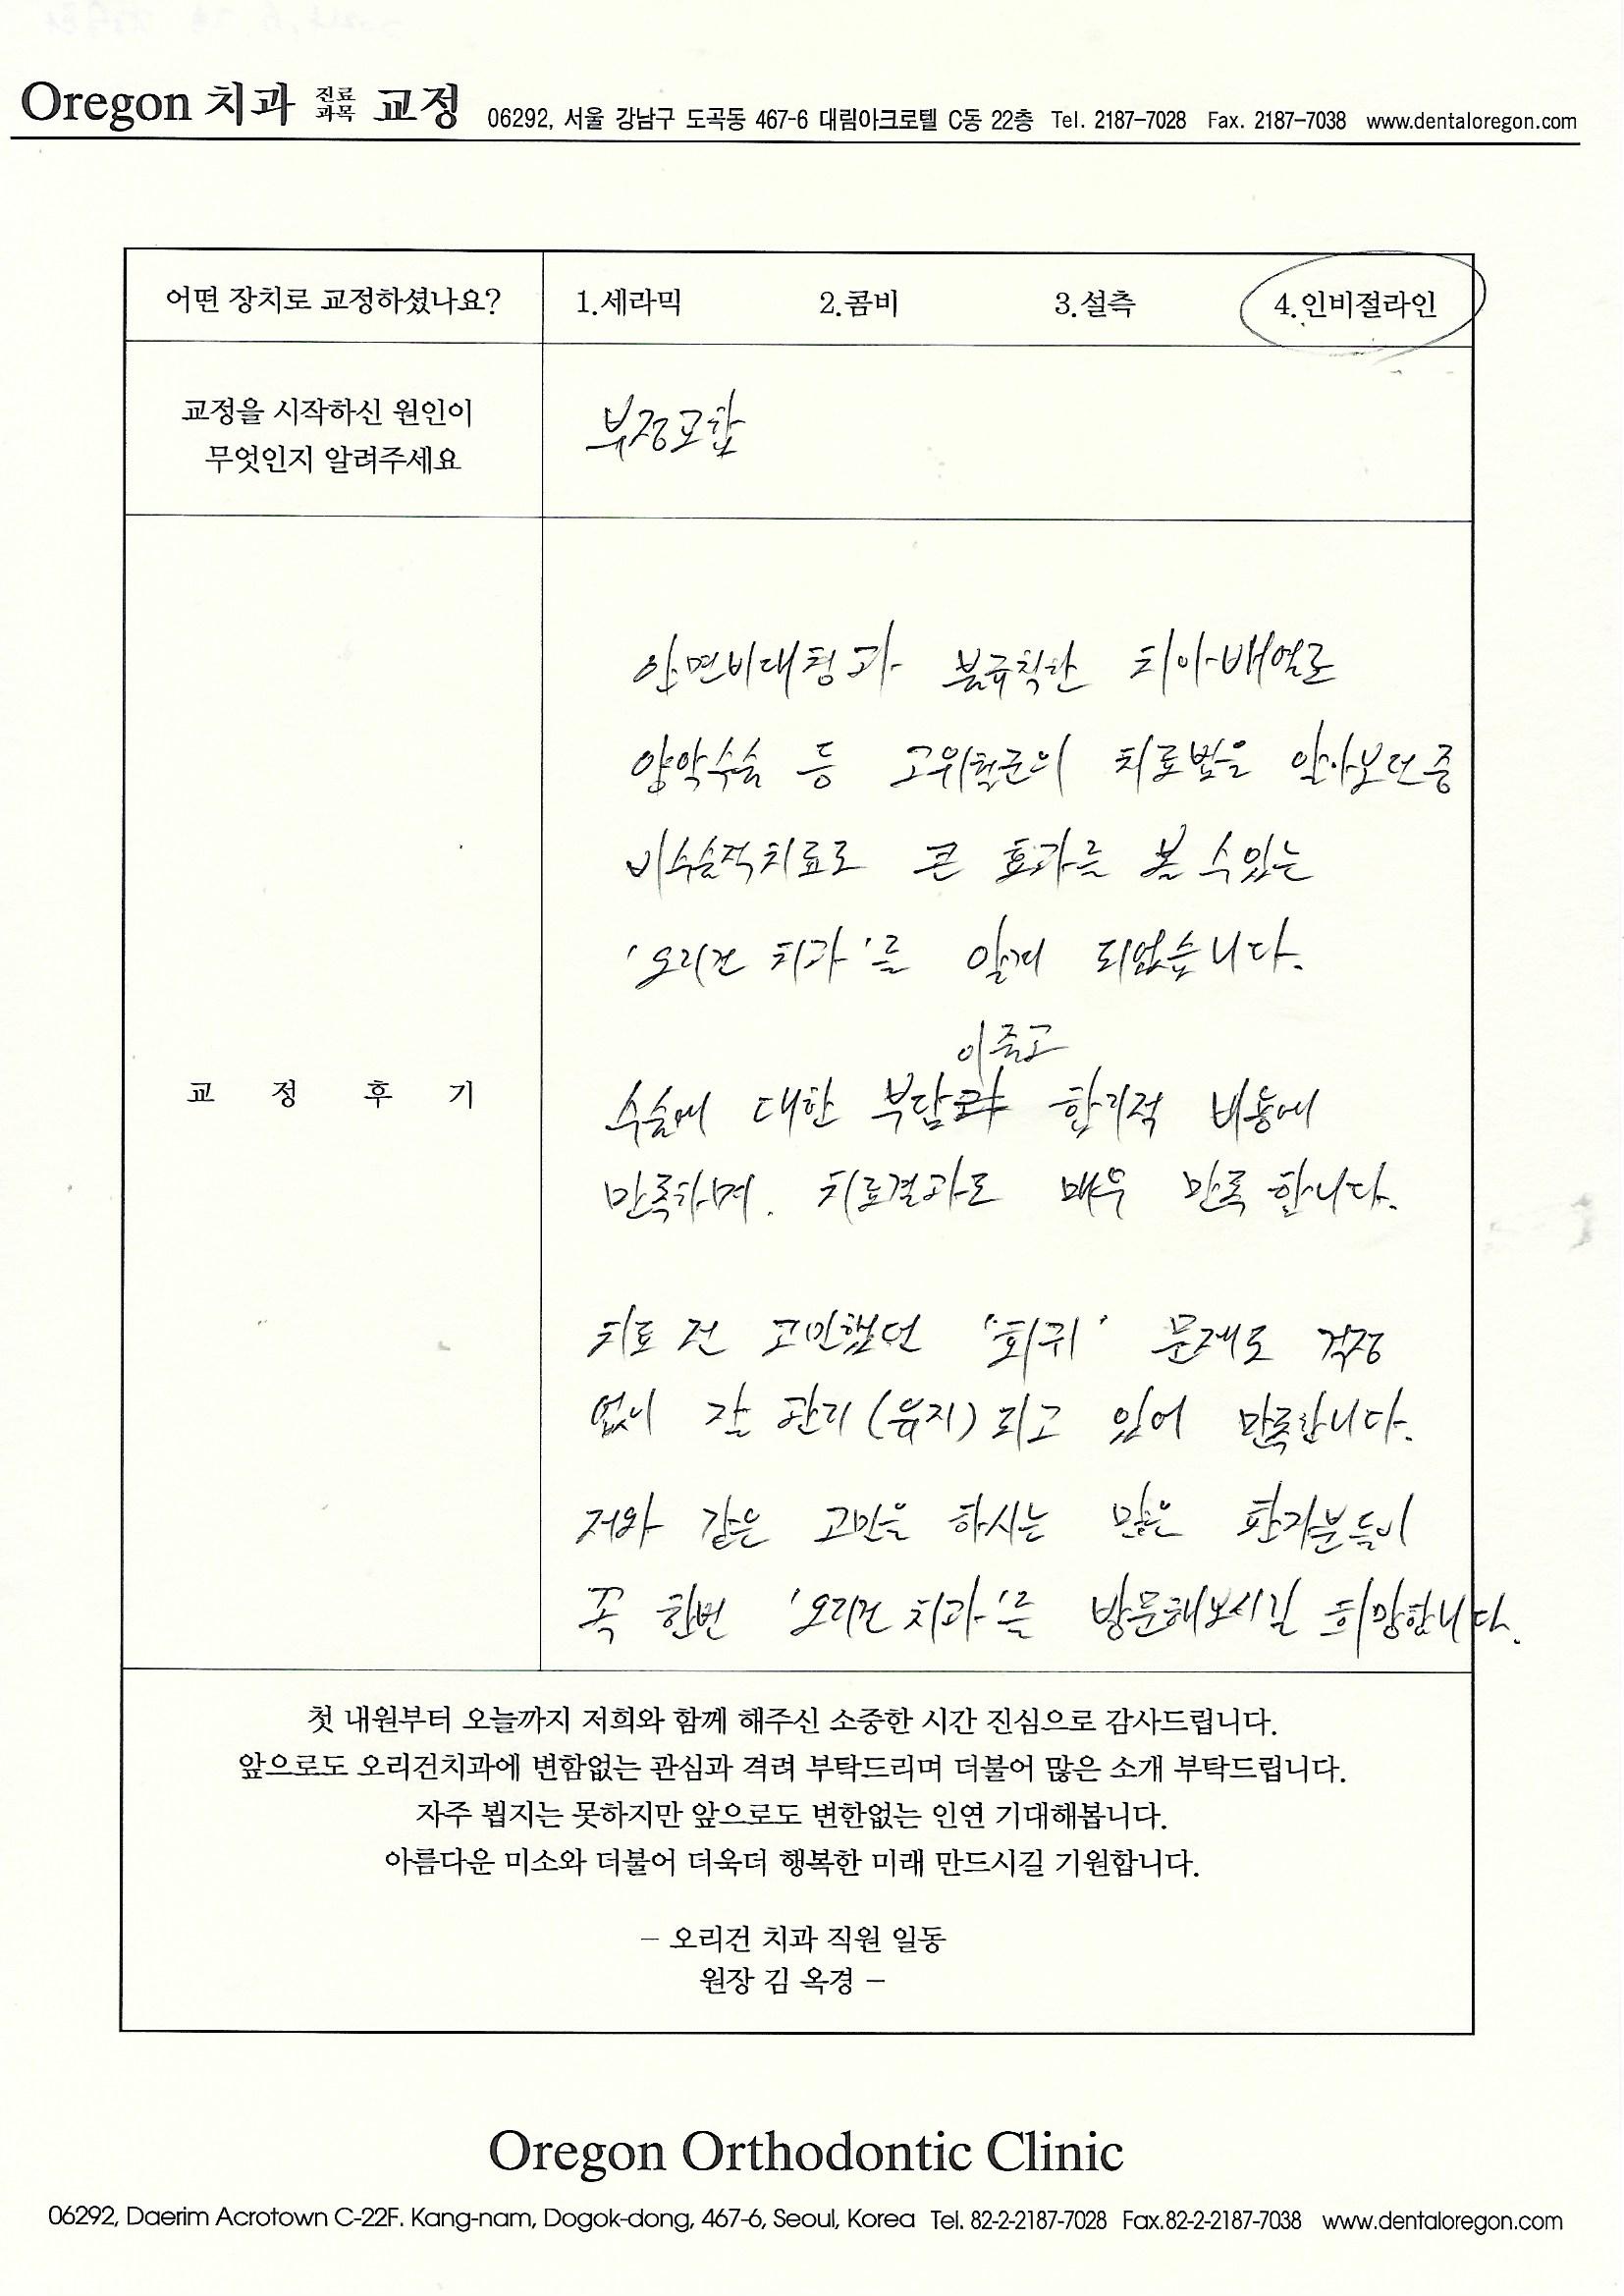 Oregon 치과 진료과목 교정 06292, 서울 강남구 도곡동 467-6 대림아크로텔 C동 22층 Tel. 2187-7028 Fax. 2187-7038 www.dentaloregon.com
어떤 장치로 교정하셨나요? 1.세라믹 2.콤비 3.설측 4.인비절라인
교정을 시작하신 원인이
무엇인지 알려주세요
부정교합
교 정 후 기
안면비대칭과 불규칙한 치아배열로
양악수술 등 고위험군의 치료법을 알아보던중
비수술적치료로 큰 효과를 볼 수있는
'오리건 치과'를 알게 되었습니다.
이 줄고
수술에 대한 부담 합리적 비용에
만족하며. 치료결과도 매우 만족 합니다.
치료 전 고민했던 '회귀' 문제도 걱정
없이 잘 관리(유지)되고 있어 만족합니다.
저와 같은 고민을 하시는 많은 환자분들이
꼭 한번 '오리건 치과'를 방문해보시길 희망합니다.
첫 내원부터 오늘까지 저희와 함께 해주신 소중한 시간 진심으로 감사드립니다.
앞으로도 오리건치과에 변함없는 관심과 격려 부탁드리며 더불어 많은 소개 부탁드립니다.
자주 뵙지는 못하지만 앞으로도 변한없는 인연 기대해봅니다.
아름다운 미소와 더불어 더욱더 행복한 미래 만드시길 기원합니다.
– 오리건 치과 직원 일동
원장 김 옥경 –
Oregon Orthodontic Clinic
06292, Daerim Acrotown C-22F. Kang-nam, Dogok-dong, 467-6, Seoul, Korea Tel. 82-2-2187-7028 Fax.82-2-2187-7038 www.dentaloregon.com